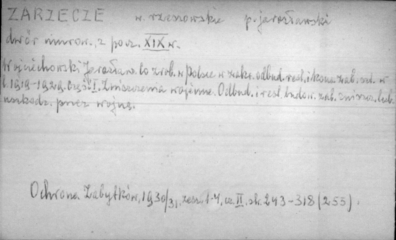 ZARZECZE w. rzeszowskie p. jarosławski
dwór murow. z pocz. XIX w.
Wojciechowski Jarosław. Co zrob. w Polsce w zakr. odbud. rest. i konserw. zab. szt. w
l. 1919-1929. Część I. Zniszczenia wojenne. Odbud. i rest. budow. zab. zniszcz. lub
uszkodz. przez wojnę.
Ochrona Zabytków, 1930/31, zesz. 1-4, cz. II. str. 243-318 (255).